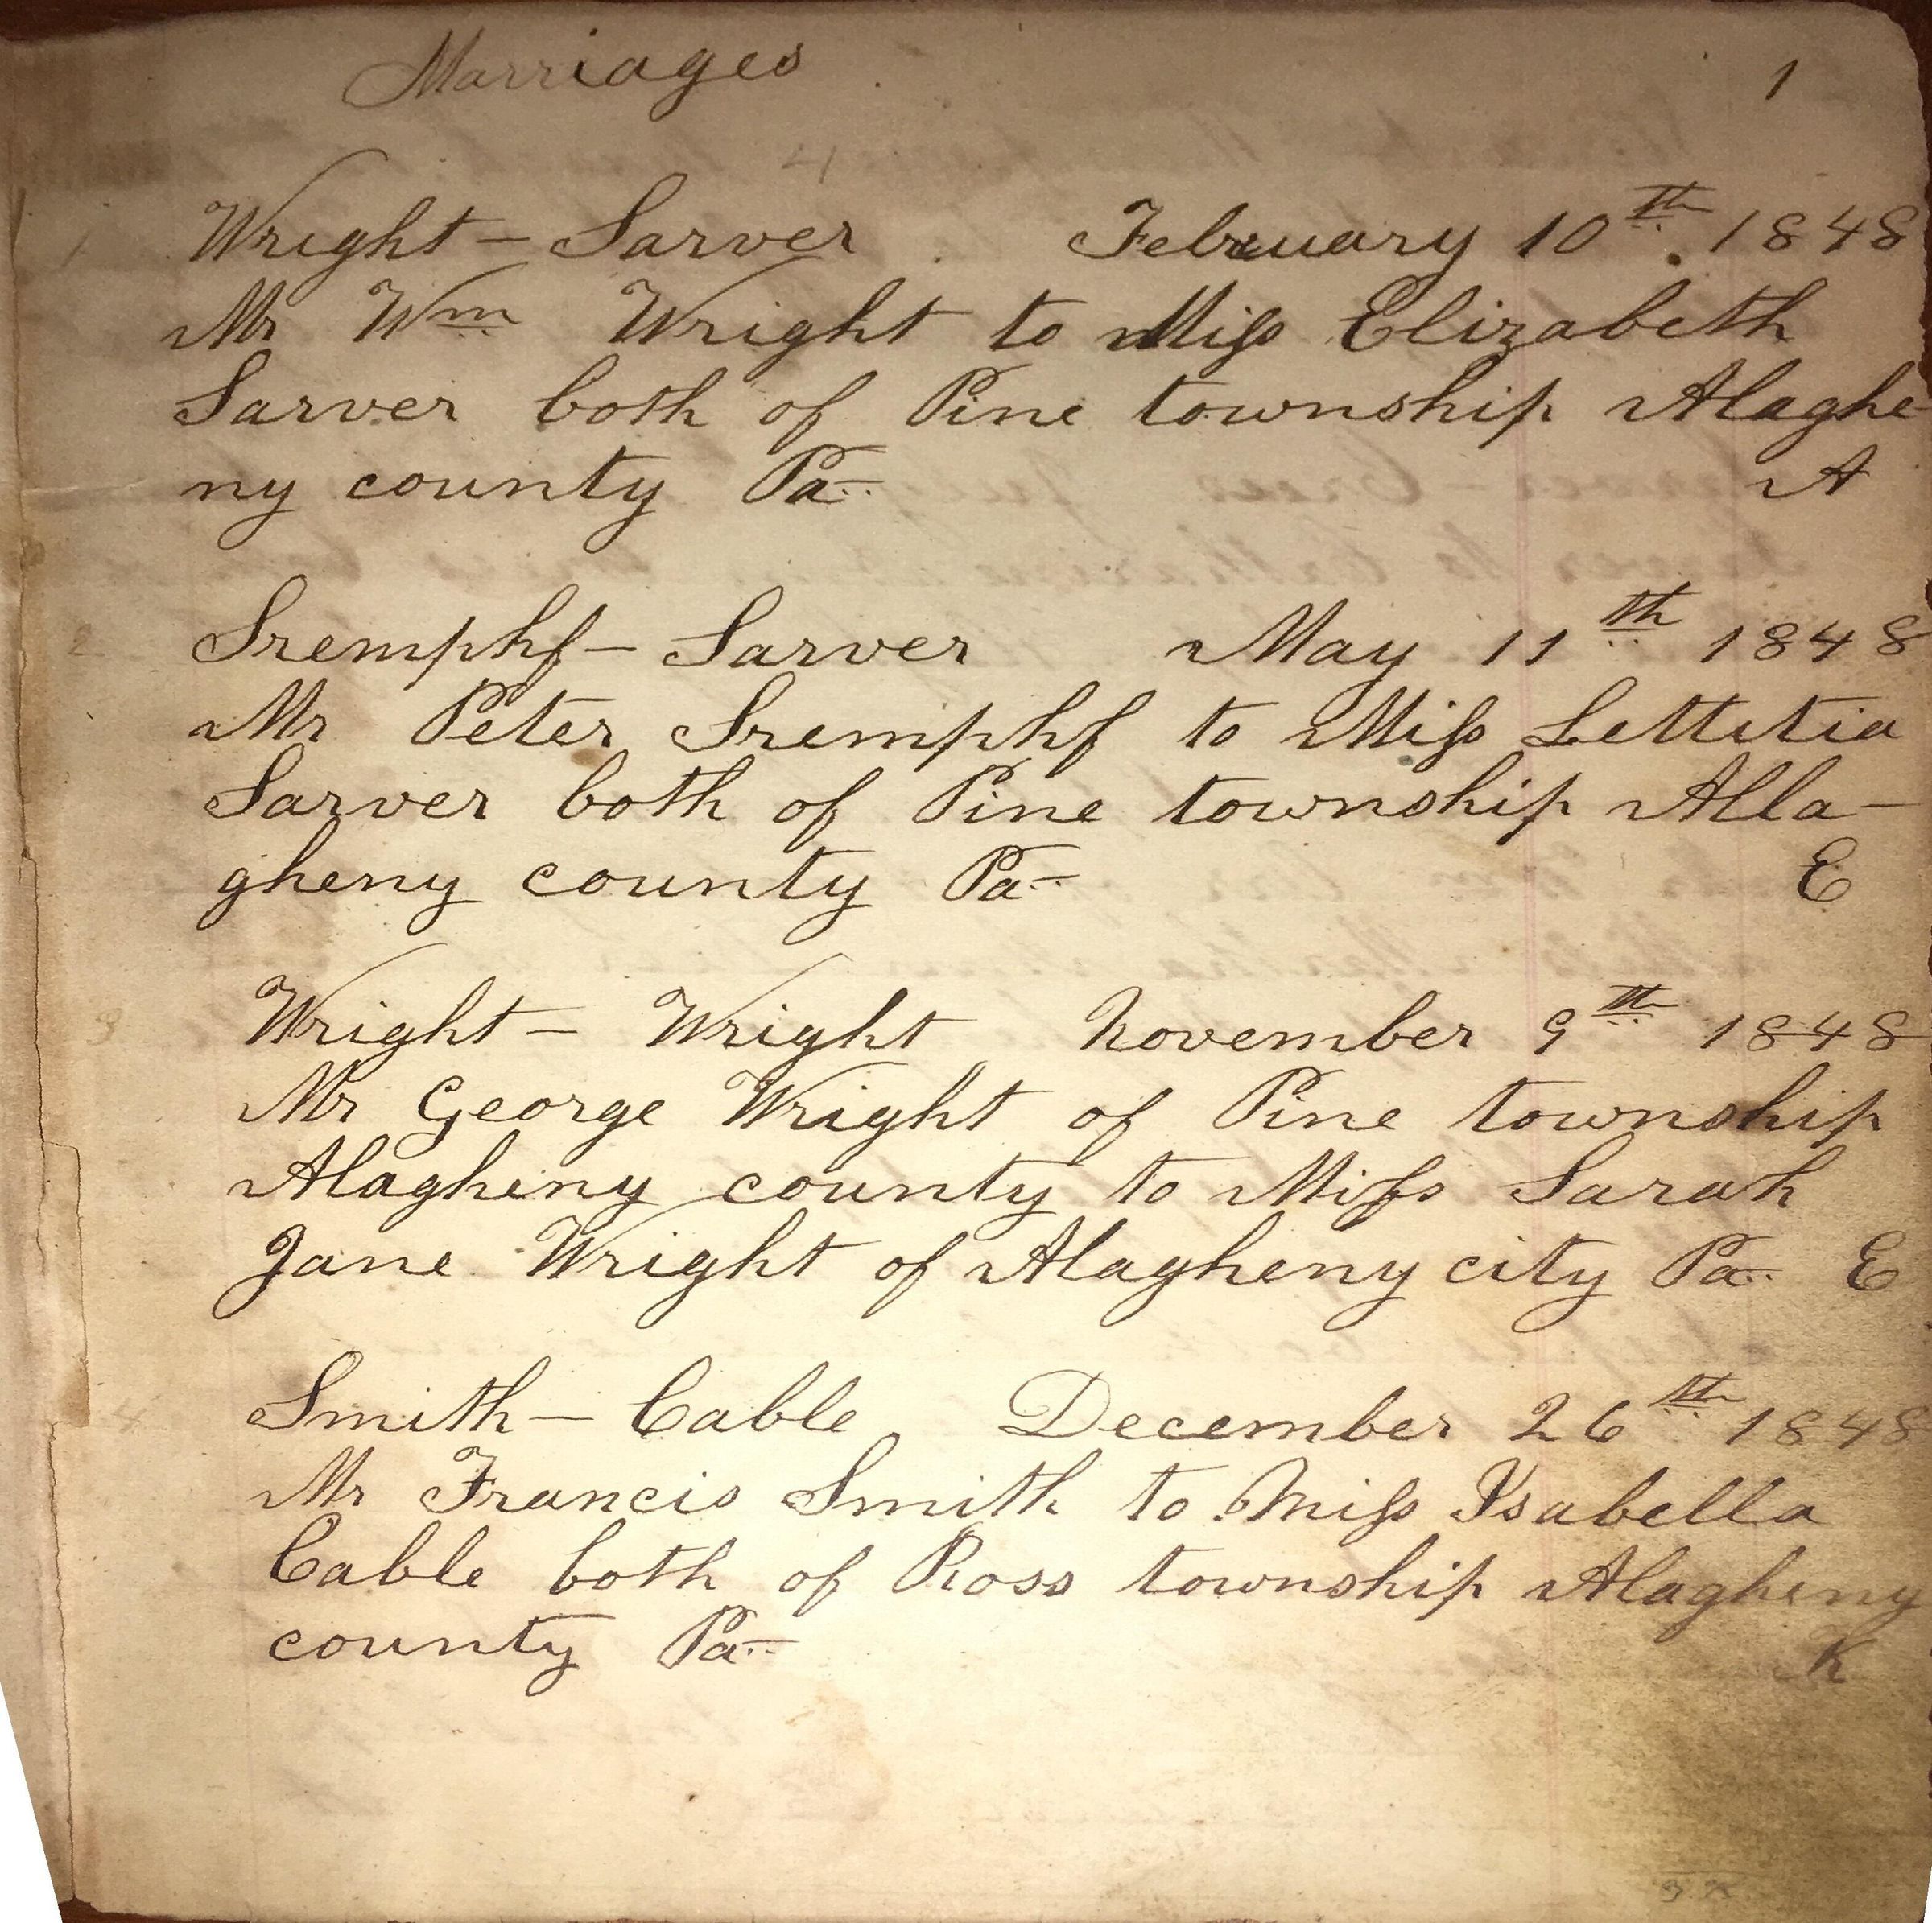 Marriages 1
4
1 Wright – Sarver February 10th 1848
Mr Wm Wright to Miss Elizabeth
Sarver both of Pine township Alaghe-
ny county Pa A
2 Sremphf – Sarver May 11th 1848
Mr Peter Sremphf to Miss Lettitia
Sarver both of Pine township Alla-
gheny county Pa E
3 Wright – Wright November 9th 1848
Mr George Wright of Pine township
Alagheny county to Miss Sarah
Jane Wright of Alagheny city Pa E
4 Smith – Cable December 26th 1848
Mr Francis Smith to Miss Isabella
Cable both of Ross township Alagheny
county Pa K